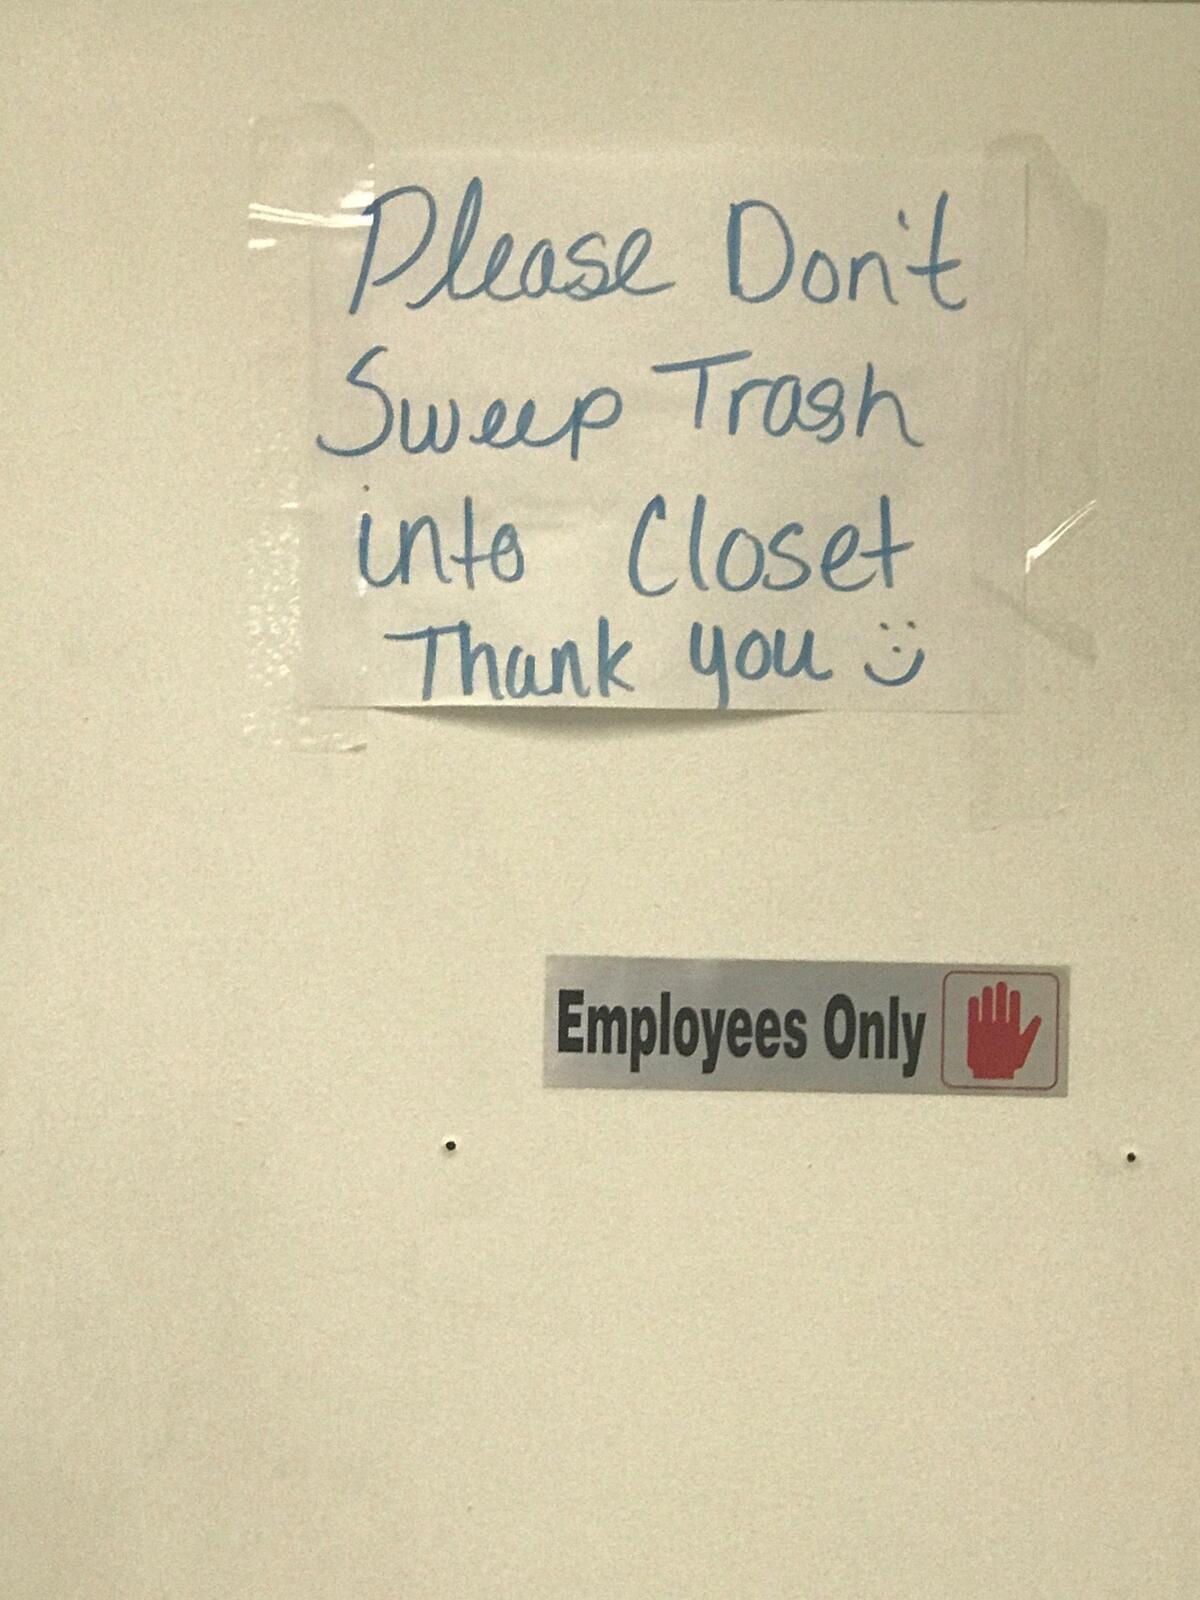 Please Don't
Sweep Trash
into Closet
Thank you
Employees Only